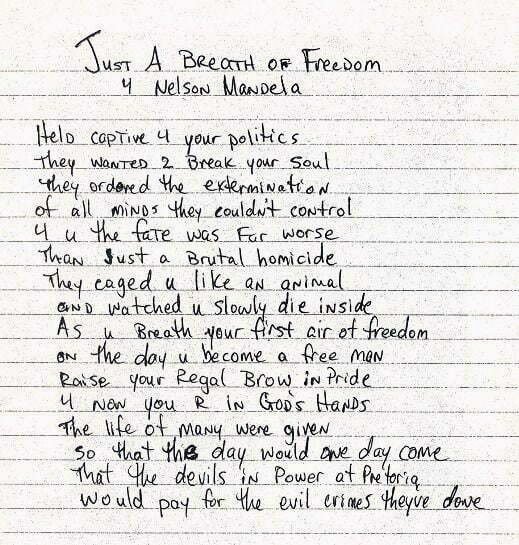 Just A Breath of Freedom
4 Nelson Mandela
Held captive 4 your politics
They wanted 2 Break your soul
They ordered the extermination
of all minds they couldn't control
4 u the fate was Far worse
Than Just a Brutal homicide
They caged u like an animal
and watched u slowly die inside
As u Breath your first air of freedom
on the day u become a free man
Raise your Regal Brow in Pride
4 now you R in God's Hands
The life of many were given
so that the day would one day come
That the devils in Power at Pretoria
would pay for the evil crimes theyve done